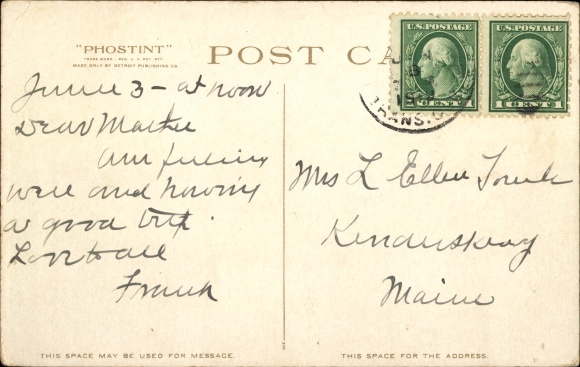 "PHOSTINT"
TRADE MARK - REG. U.S. PAT. OFF.
MADE ONLY BY DETROIT PUBLISHING CO.
POST CA
U.S. POSTAGE
U.S. POSTAGE
CENT 1
1 CENT 1
TRANS.
June 3 - at noon
Dear
Am feeling
well and having
a good trip.
Love to all
Frank
Mrs L Ellen
Kenduskeag
Maine
THIS SPACE MAY BE USED FOR MESSAGE.
THIS SPACE FOR THE ADDRESS.